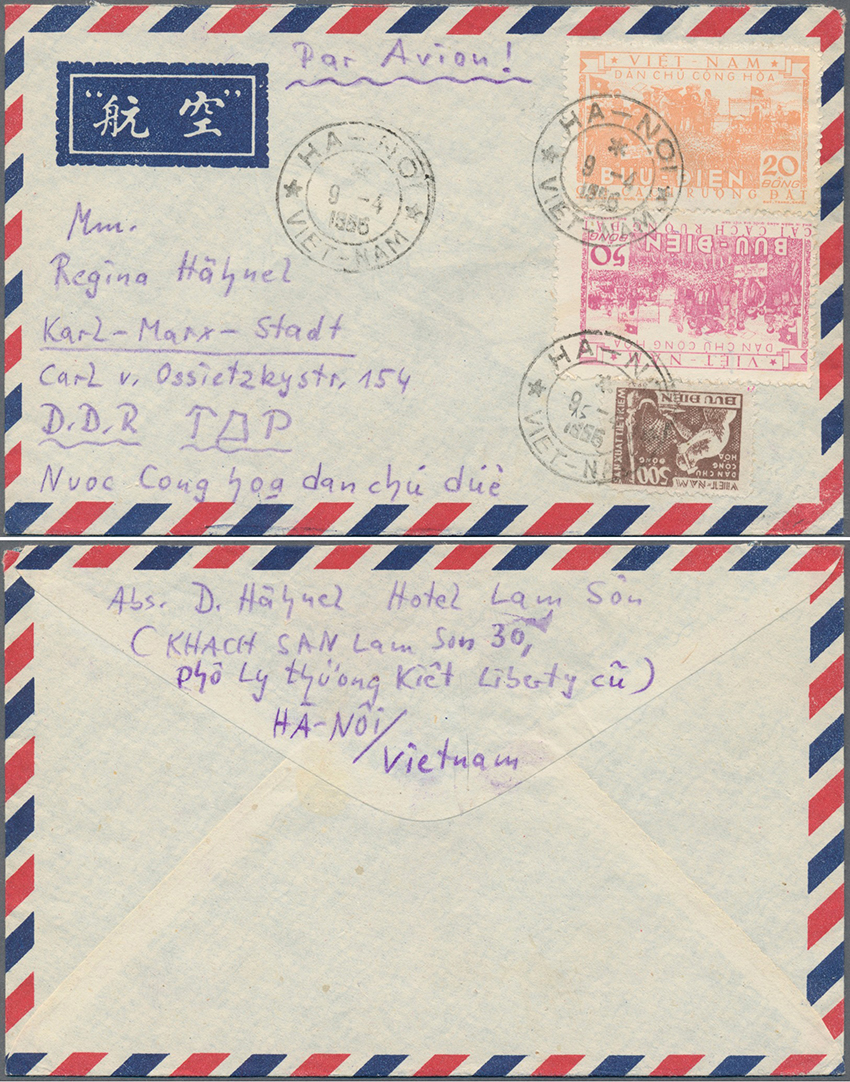 Par Avion!
"航空"
HA-NOI
9-4
1956
VIET-NAM
VIỆT-NAM
DÂN CHỦ CỘNG HÒA
20
ĐỒNG
BƯU-ĐIỆN
RUỘNG ĐẤT
HA-NOI
9-4
1956
VIET-NAM
50
ĐỒNG
BƯU-ĐIỆN
CẢI CÁCH
DÂN CHỦ CỘNG HÒA
VIỆT-NAM
HA-N
1956
VIET-NA
BƯU ĐIỆN
XUẤT TIẾT KIỆM
500
ĐỒNG
DÂN CHỦ
CỘNG
HÒA
VIỆT-NAM
Mm.
Regina Hähnel
Karl-Marx-Stadt
Carl v. Ossietzkystr. 154
D.D.R ГДР
Nuoc Cong hoạ dan chú dúê
Abs. D. Hähnel Hotel Lam Sôn
(KHACH SAN Lam Son 30,
phô Ly thương Kiêt Liberty cũ)
HÀ-NÔI/
Vietnam